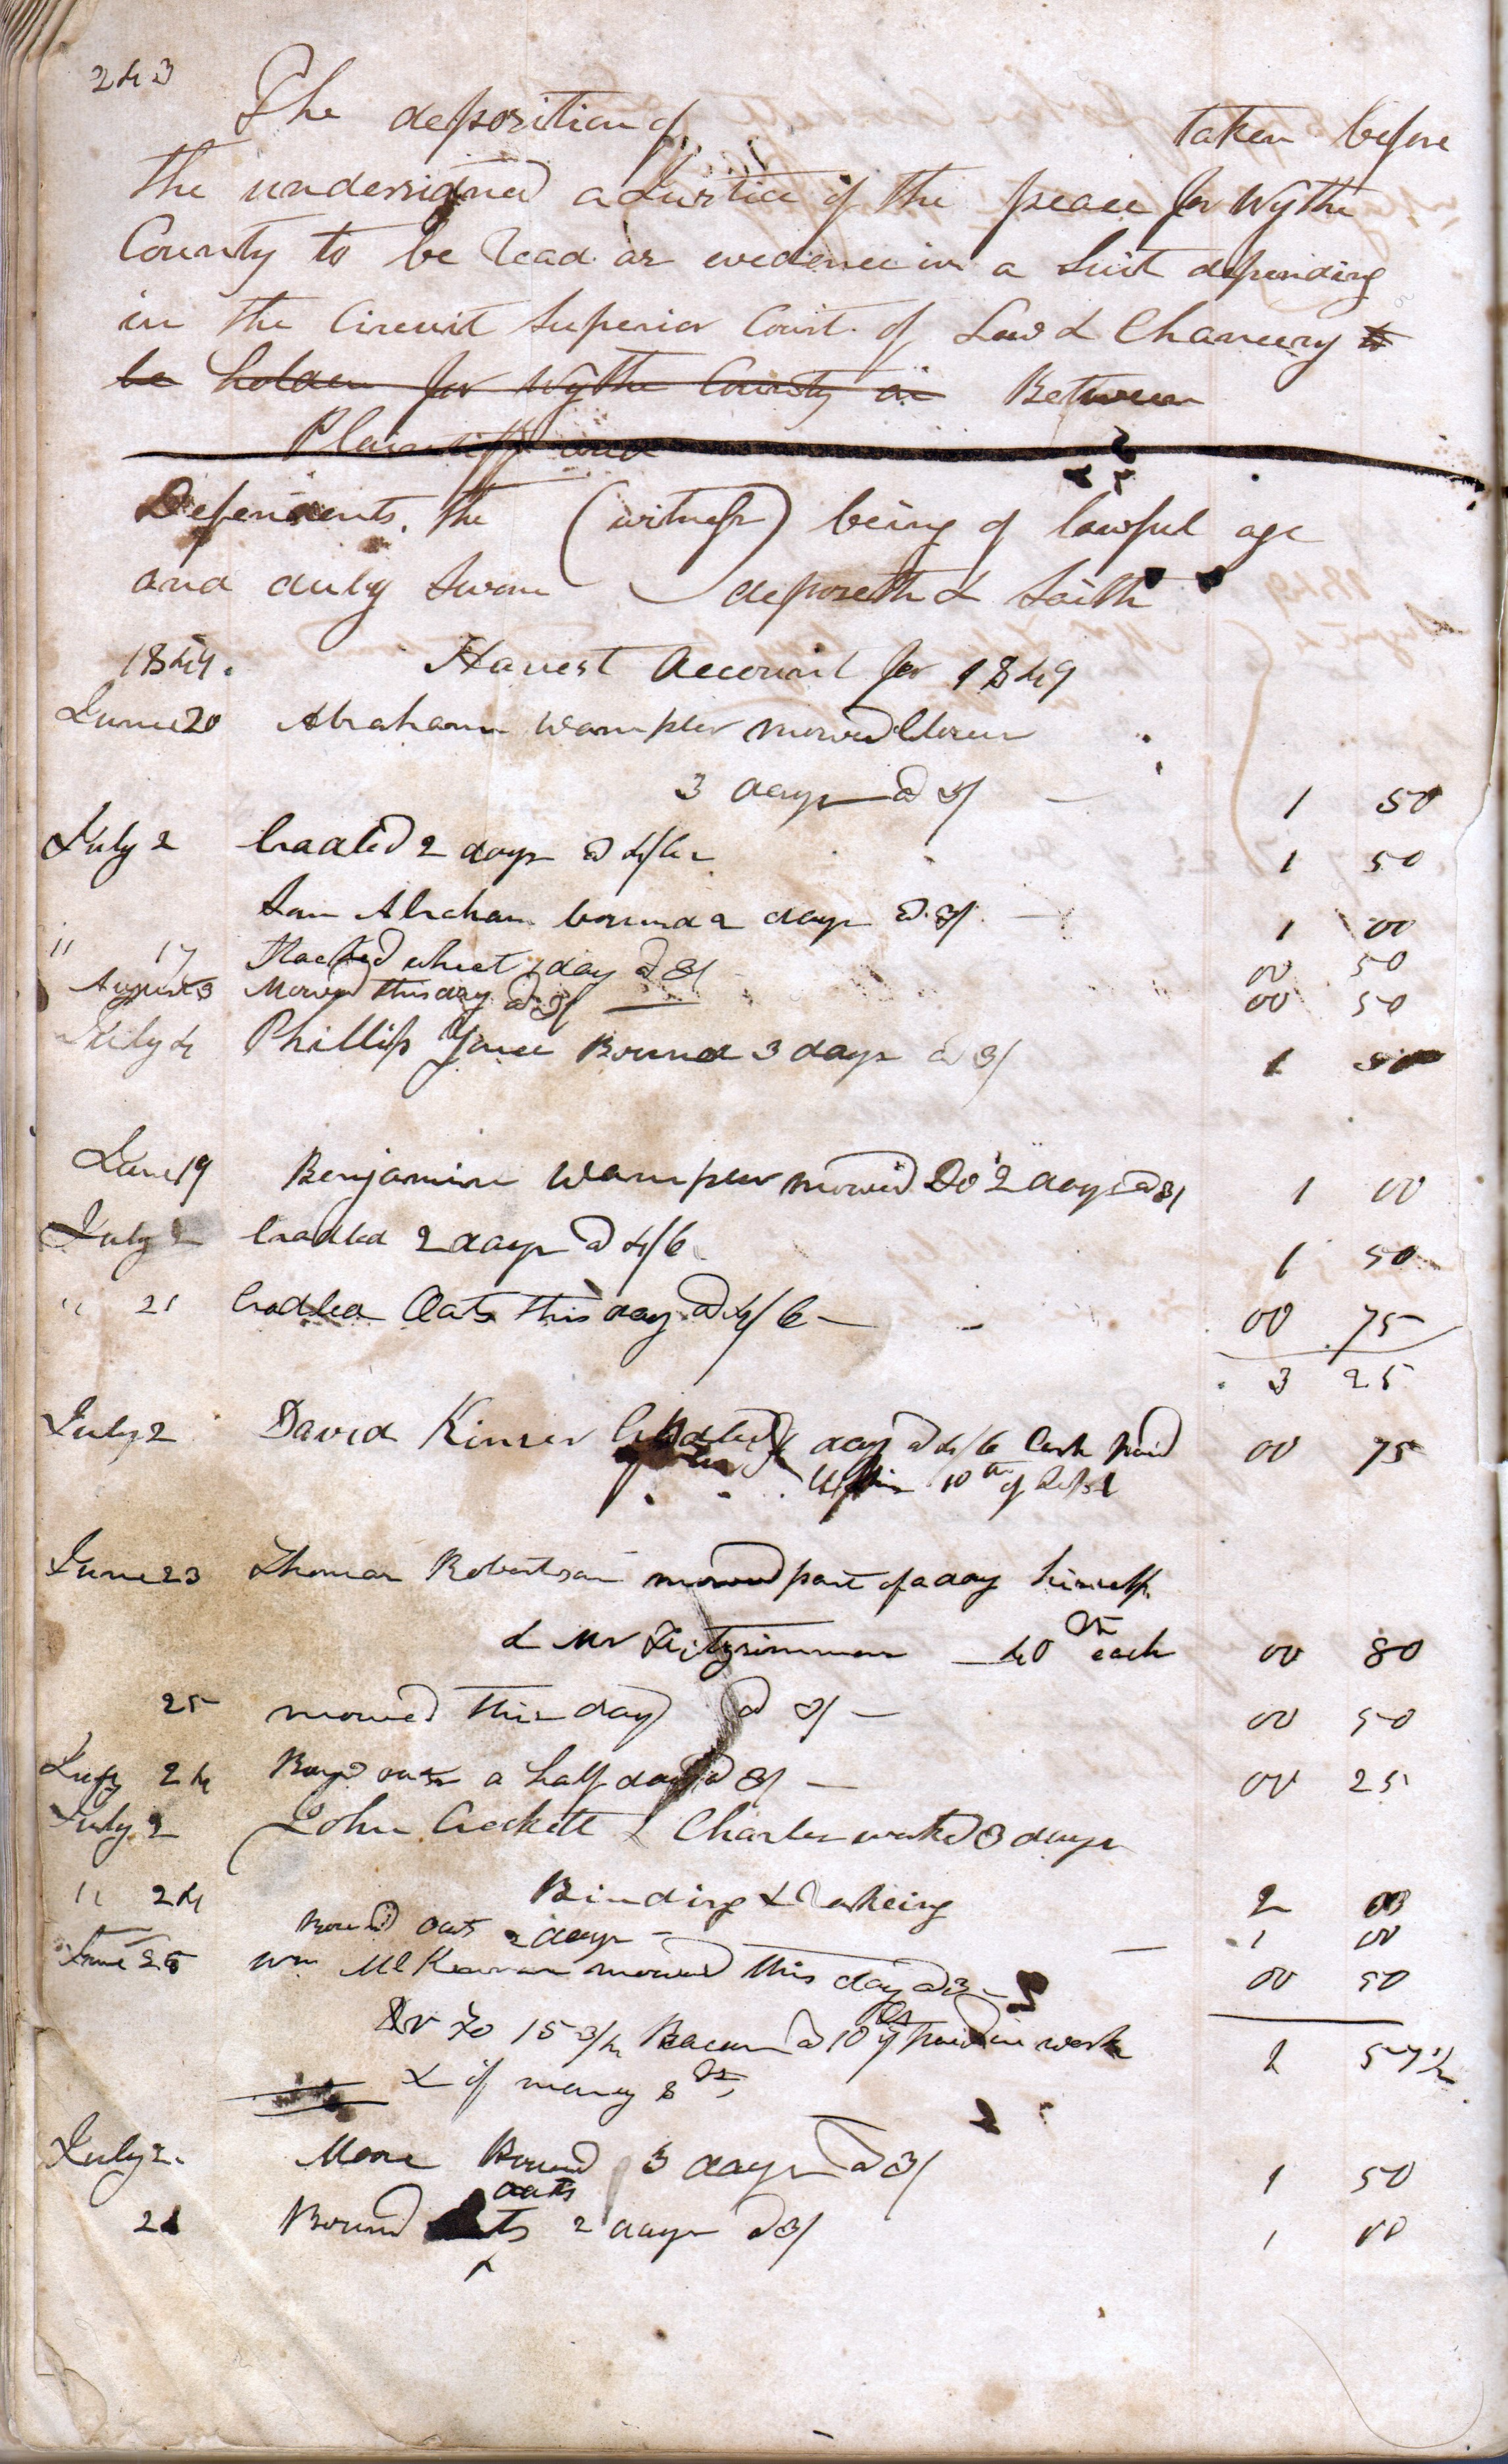 243
The deposition of taken before
the undersigned a Justice of the peace for Wythe
County to be read as evidence in a Suit depending
in the Circuit Superior Court of Law & Chancery to
be holden for Wythe County in Between
Plaintiff and
Defendents. the (witness) being of lawful age
and duly sworn deposeth & saith
1849. Harvest Account for 1849
June 20 Abraham Wampler mowed Clover
3 days @ 3/ 1 50
July 2 Cradled 2 days @ 4/6 1 50
Son Abraham bound 2 days @ 3/. 1 00
" 17 Stacked wheat 1 day @ 3/ 00 50
August 3 Mowed this day @ 3/ 00 50
July 4 Phillip Yonce Bound 3 days @ 3/ 1 50
June 19 Benjamin Wampler mowed Do 2 days @ 3/ 1 00
July 2 Cradled 2 days @ 4/6 1 50
" 21 Cradled Oats this day @ 4/6 00 75
3 25
July 2 David Kinser Cradled day @ 4/6 Cash paid 00 75
10th of
June 23 Thomas Robertson mowed part of a day himself
& Mr Fitzsimmon 40 cts each 00 80
25 mowed this day @ 3/ 00 50
July 24 oats a half day @ 3/ 00 25
July 2 John Crockett & Charles worked 3 days
Binding & Rakeing 2 00
" 24 Bound oats 2 days 1 00
June 25 Wm McKearnan mowed this day @ 3 00 50
Dr To 15 3/4 Bacon @ 10 cts if paid in work 1 57 1/2
& if money 8 cts
July 2. Moore Bound 3 days @ 3/ 1 50
oats
21 Bound 2 days @ 3/ 1 00